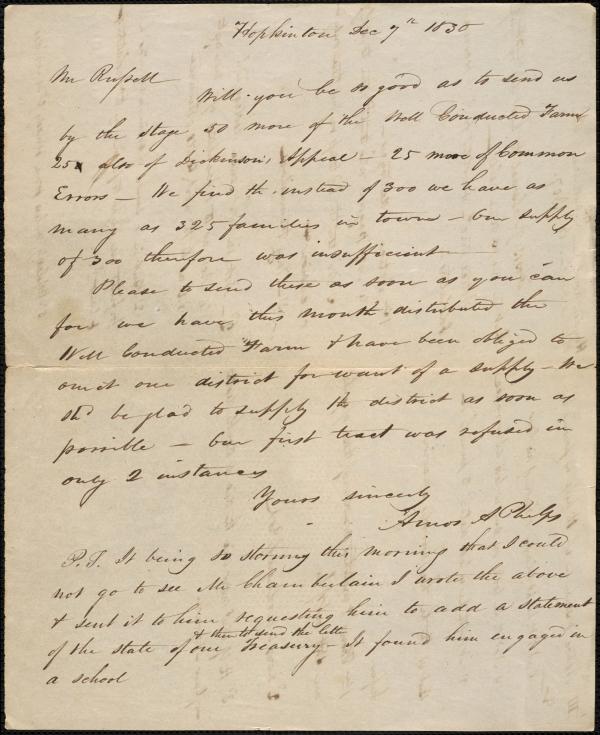 Hopkinton Dec 7th 1830
Mr Russell
Will you be so good as to send us
by the stage, 50 more of the Well Conducted Farm
25 also of Dickinson's Appeal - 25 more of Common
Errors - We find th. instead of 300 we have as
many as 325 families in town - Our supply
of 300 therefore was insufficient
Please to send these as soon as you can
for we have this month distributed the
Well Conducted Farm & have been obliged to
omit one district for want of a supply - We
shd be glad to supply the district as soon as
possible - Our first tract was refused in
only 2 instances
Yours sincerely
Amos A Phelps
P.S. It being so stormy this morning that I could
not go to see Mr Chamberlain I wrote the above
& sent it to him requesting him to add a statement
& then to send the letter
of the state of our Treasury - It found him engaged in
a school